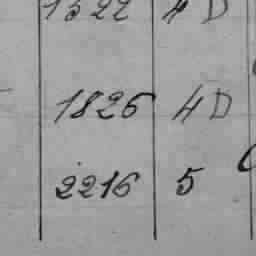 1322 4D
1826 4D
2216 5